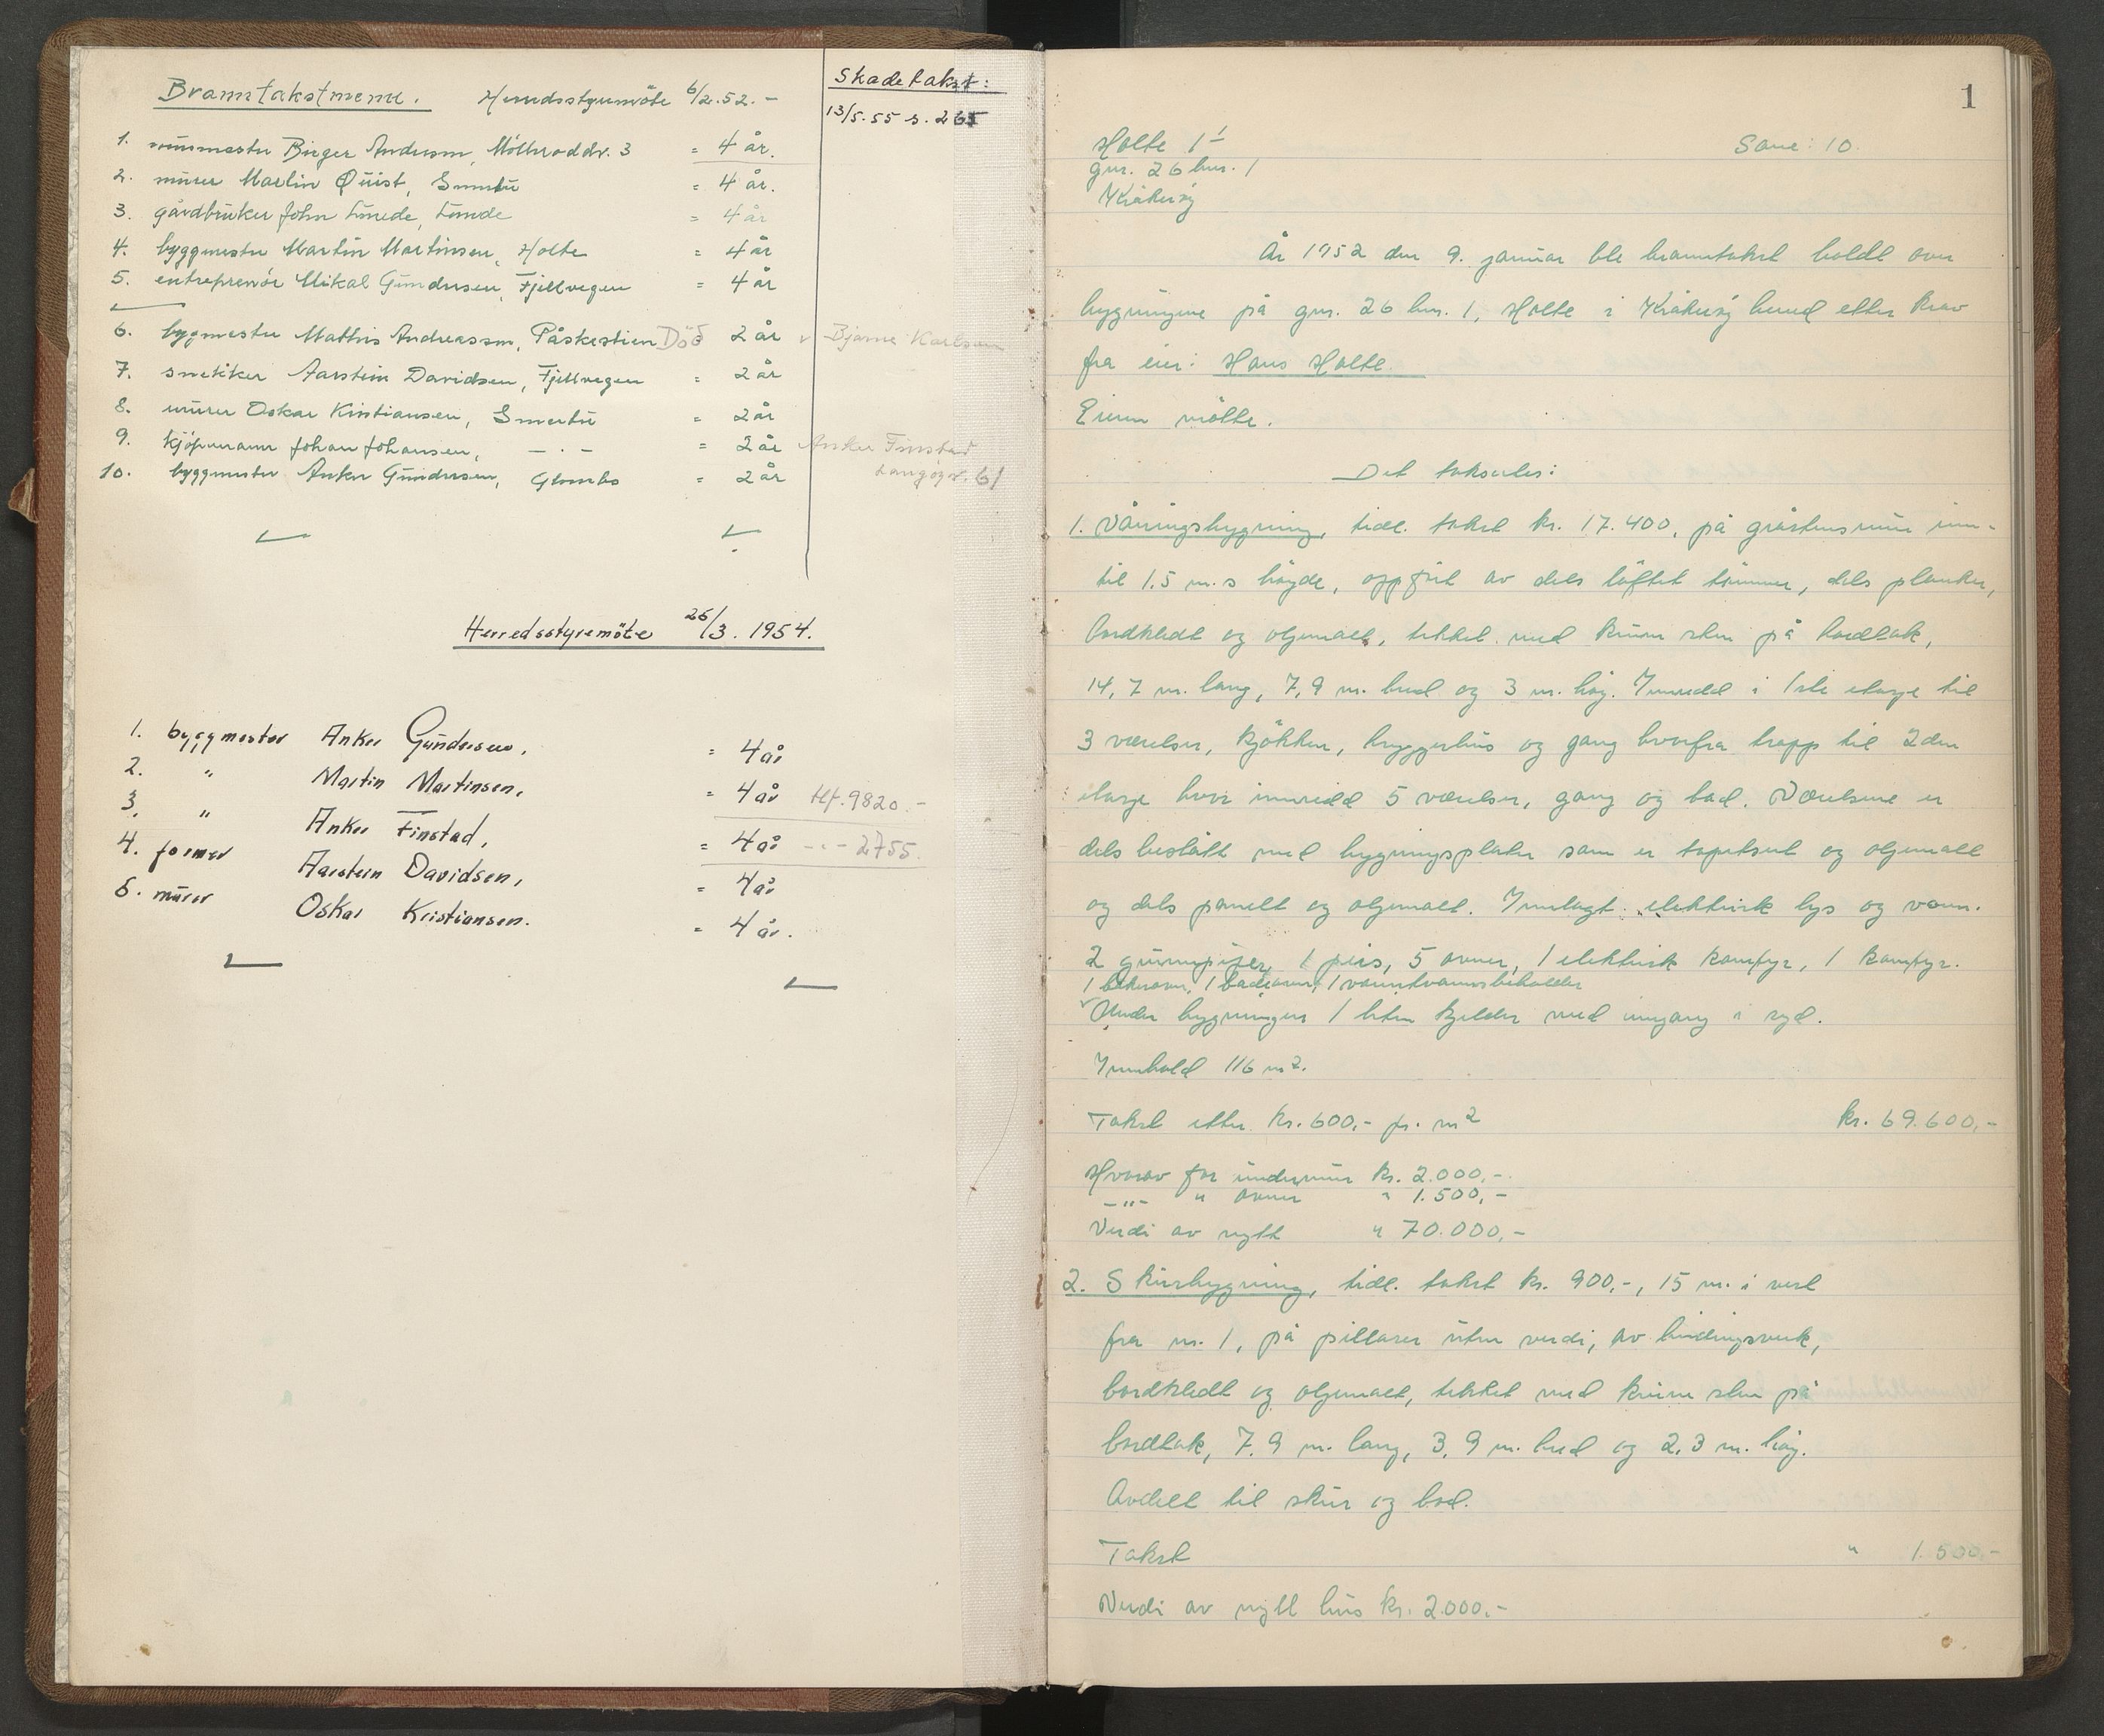 Branntakstmenn. Herredsstyremöte 6/2.52.-
Skadetakst:
13/5.55 s. 265
1. murmester Birger Andersen, 3 = 4 år.
2. murer Martin Quist, Smertu = 4 år.
3. gårdbruker John Lunde, Lunde = 4 år
4. byggmester Martin Martinsen, Holte = 4 år
5. entreprenör Mikal Gundersen, Fjellvegen = 4 år
6. bygmester Mathis Andreassen, Påskestien Död 2 år v Bjarne Karlsen
7. snekker Aarstein Davidsen, Fjellvegen = 2 år
8. murer Oskar Kristiansen, Smertu = 2 år
9. kjöpmann Johan Johansen, - . - = 2 år Anker Finstad
Langögv. 61
10. byggmester Anker Gundersen, Glombo = 2 år
Herredsstyremöte 26/3. 1954.
1. byggmester Anker Gundersen, = 4 år
2. " Martin Martinsen, = 4 år tlf. 9820.-
3. " Anker Finstad, = 4 år -.- 2755.
4. former Aarstein Davidsen, = 4 år
5. murer Oskar Kristiansen. = 4 år.
1
Holte 1 Sone: 10.
gnr. 26 bnr. 1
Kråkeröy
År 1952 den 9. januar ble branntakst holdt over
bygningene på gnr. 26 bnr. 1, Holte i Kråkeröy herred etter krav
fra eier: Hans Holte.
Eieren mötte.
Det takseres:
1. Våningsbygning, tidl. takst kr. 17.400, på gråstensmur inn-
til 1.5 m.s höyde, oppfört av dels löftet tömmer, dels planker,
bordkledt og oljemalt, tekket med krum sten på bordtak,
14,7 m. lang, 7,9 m. bred og 3 m. höy. Innredd i 1ste etasje til
3 værelser, kjökken, bryggerhus og gang hvorfra trapp til 2den
etasje hvor innredd 5 værelser, gang og bad. Værelsene er
dels beslått med bygningsplater som er tapetsert og oljemalt
og dels panelt og oljemalt. Innlagt elektrisk lys og vann.
2 grunnpiper, 1 peis, 5 ovner, 1 elektrisk komfyr, 1 komfyr.
1 bakerovn, 1 badeovn, 1 varmtvannsbeholder
Under bygningen 1 liten kjelder med inngang i syd.
Innhold 116 m2.
Takst etter kr. 600,- pr. m2 kr. 69.600,-
Hvorav for undermur kr. 2.000,-
-"- " ovner " 1.500,-
Verdi av nytt " 70.000,-
2. Skurbygning, tidl. takst kr. 900,-, 15 m. i vest
fra nr. 1, på pillarer uten verdi, av bindingsverk,
bordkledt og oljemalt, tekket med krum sten på
bordtak, 7,9 m. lang, 3,9 m. bred og 2,3 m. höy.
Avdelt til skur og bod.
Takst " 1.500,-
Verdi av nytt hus kr. 2.000,-